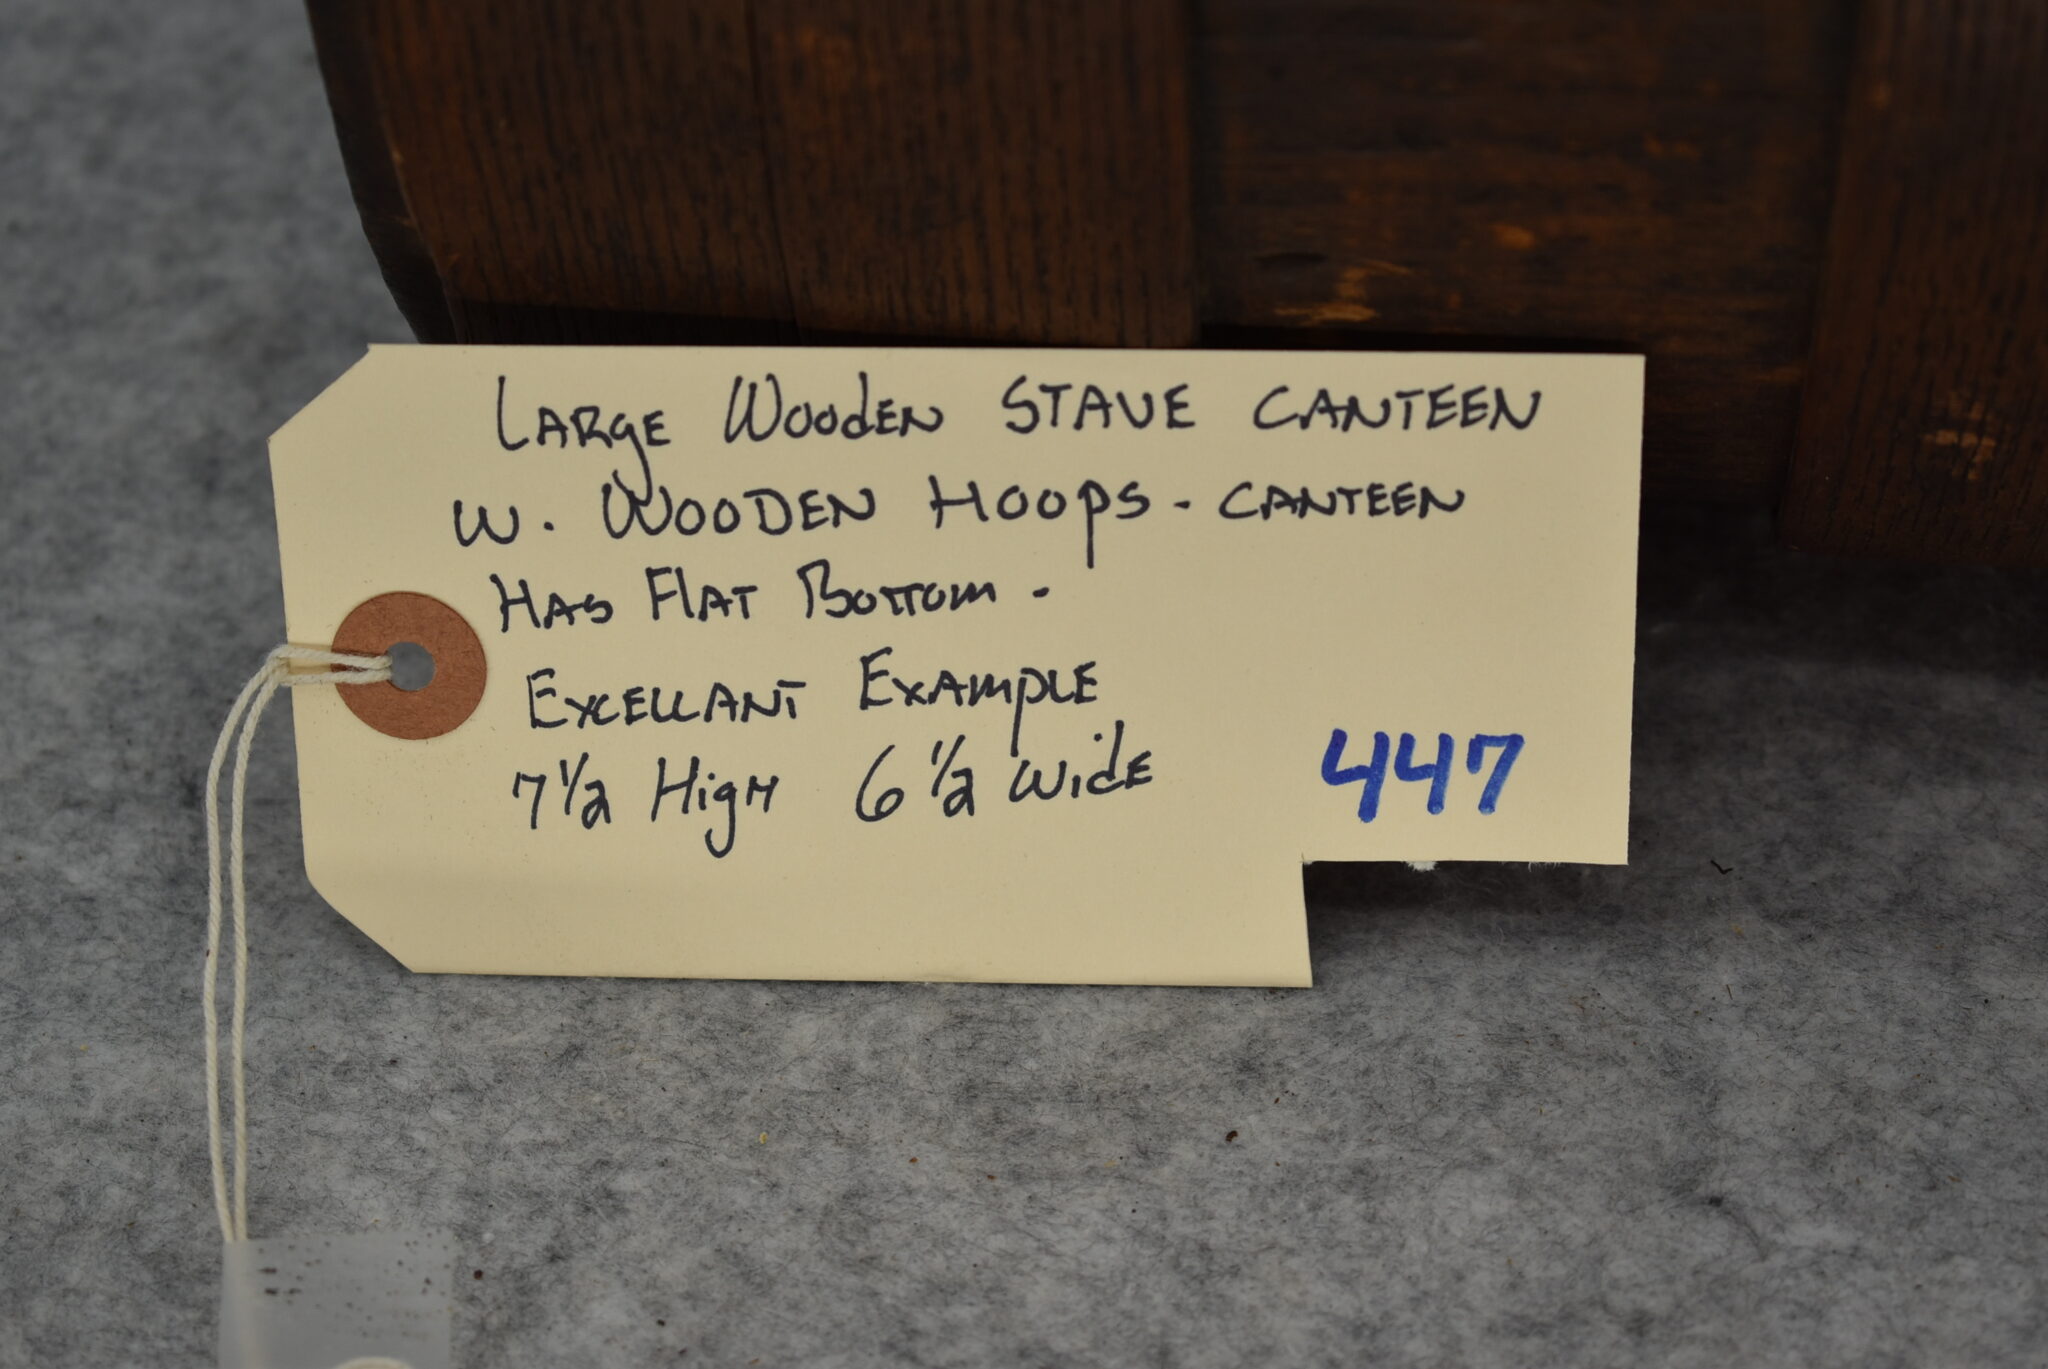 Large Wooden STAVE CANTEEN
W. WOODEN HOOPS - CANTEEN
HAS FLAT BOTTOM -
EXCELLANT EXAMPLE
7 1/2 High 6 1/2 WIDE
447